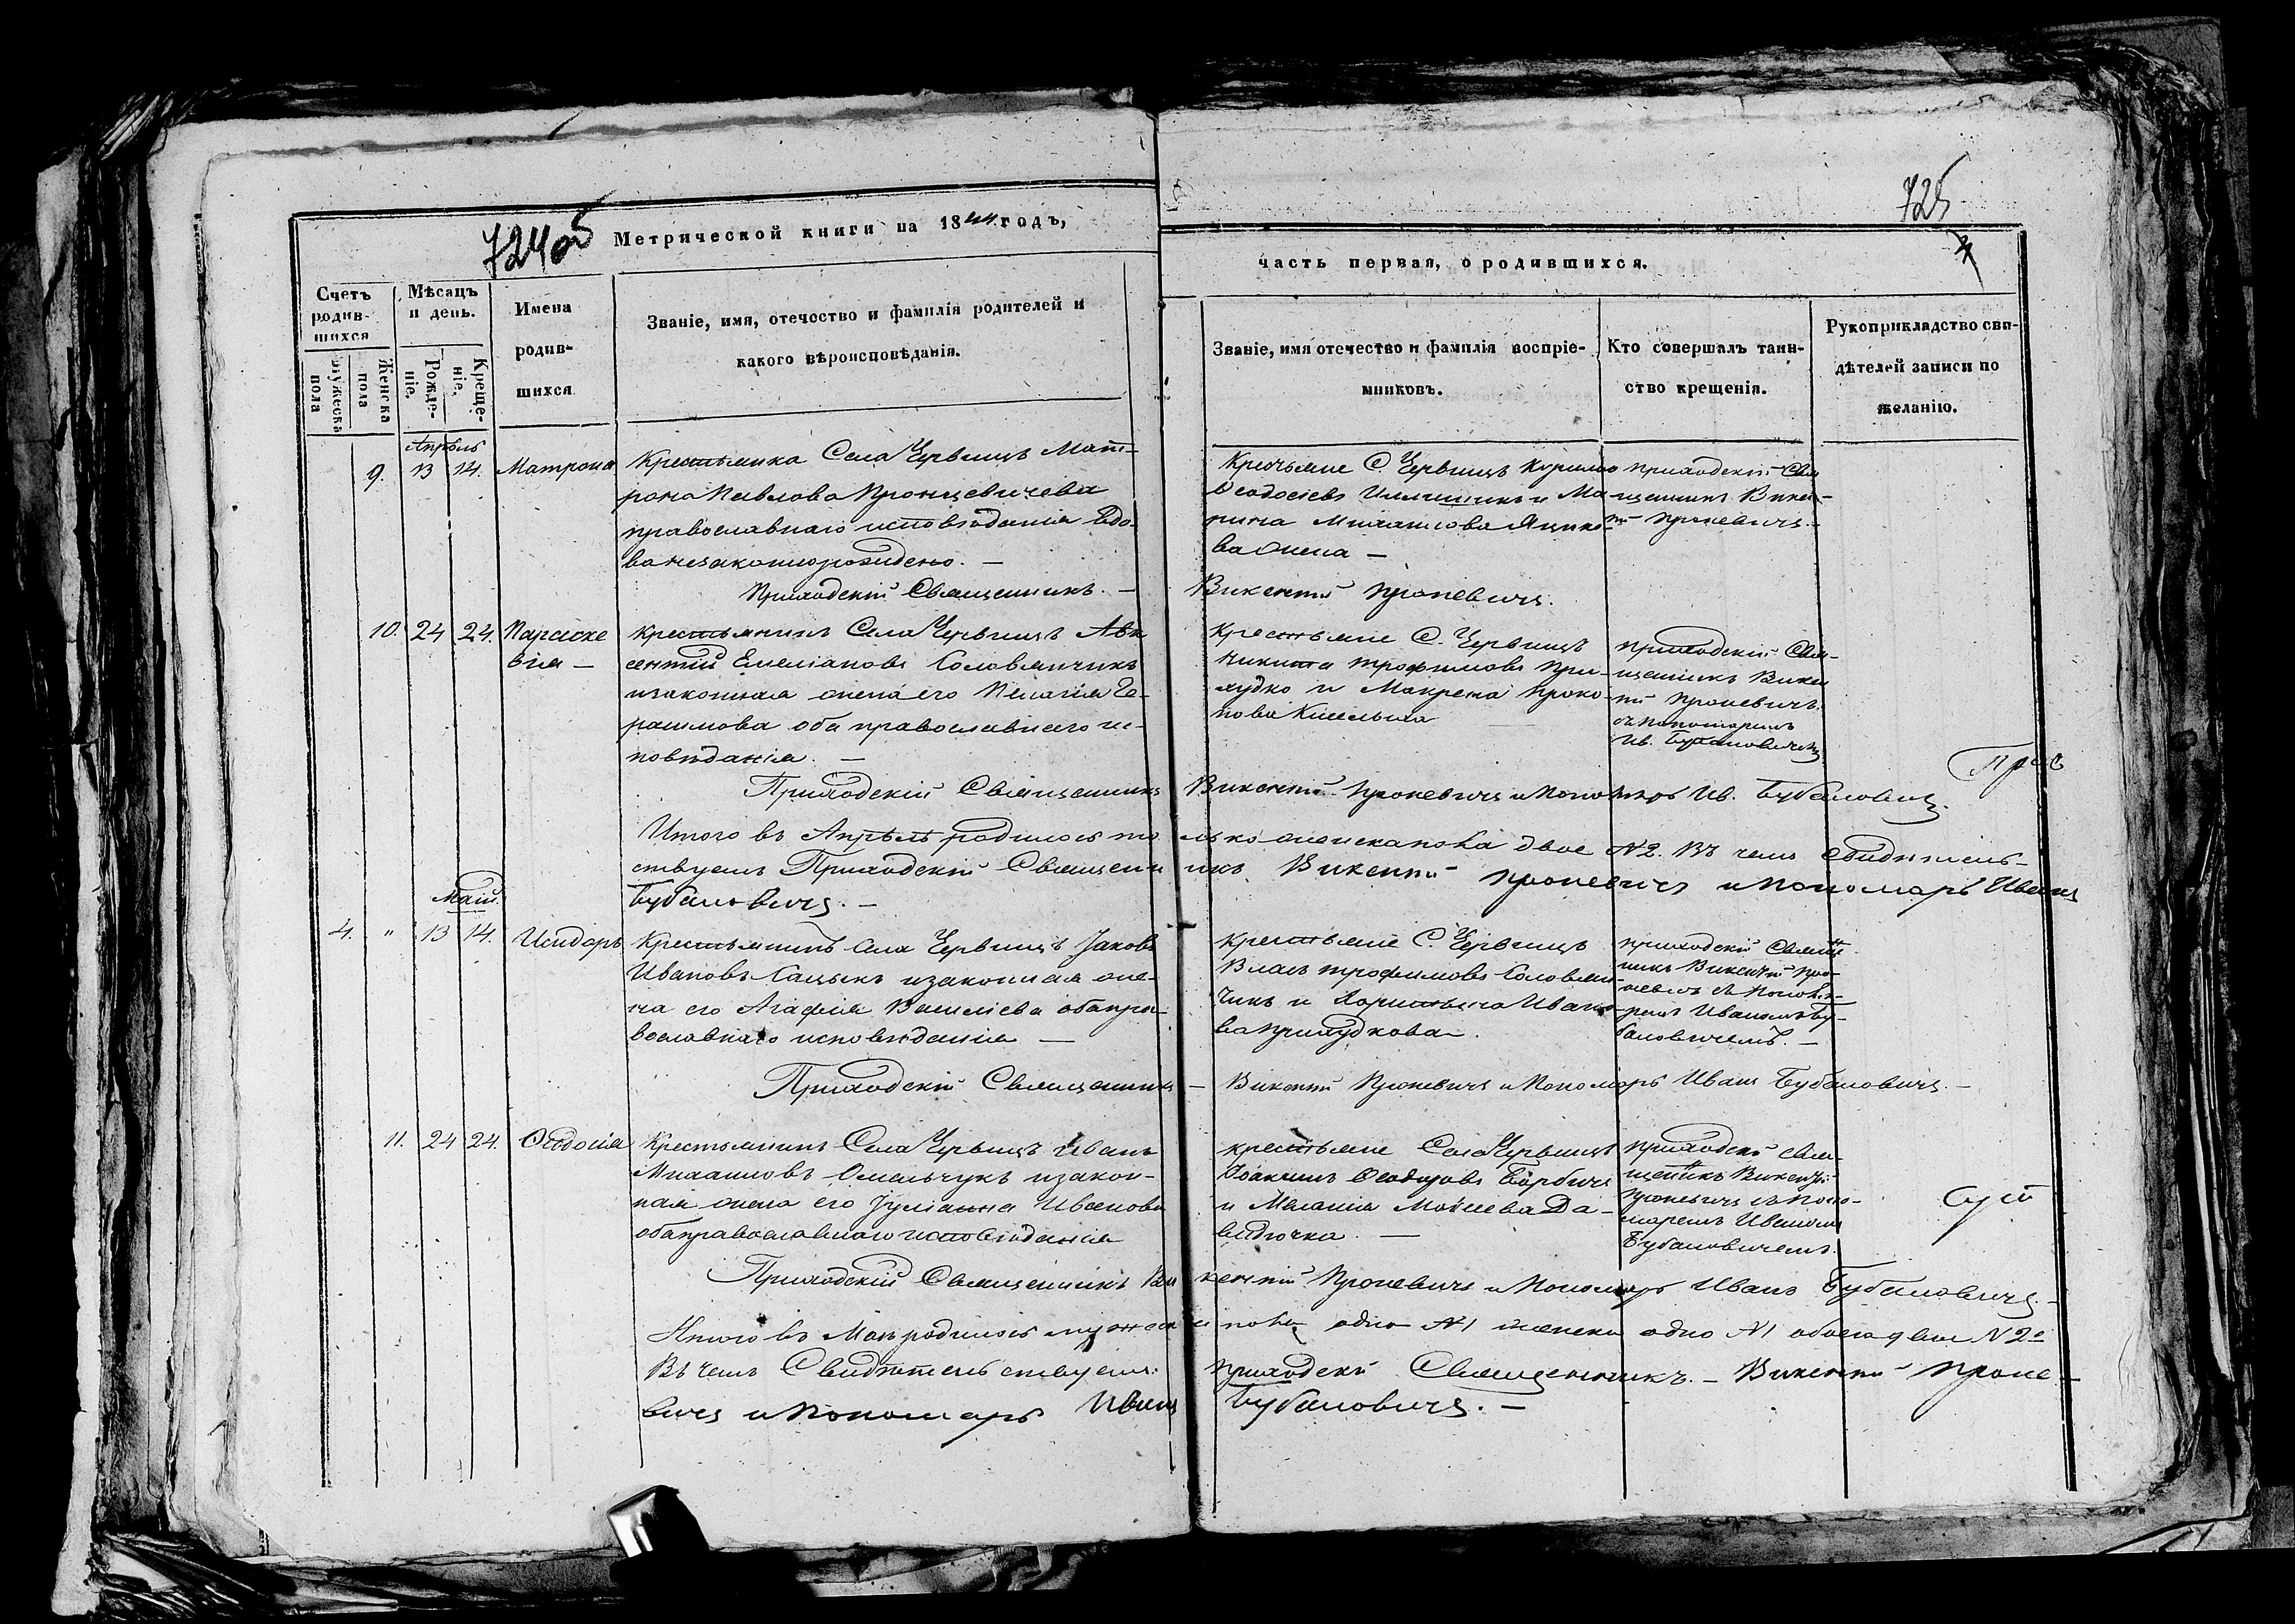 724об
725
7
Метрической книги на 1844 годъ,
часть первая, о родившихся.
Счетъ родив-шихся
Мѣсяцъ и день.
Имена родив-шихся
Званіе, имя, отечество и фамилія родителей и
какого вѣроисповѣданія.
Мужеска пола
Женска пола
Рожде-ніе.
Креще-ніе.
Званіе, имя отечество и фамилія воспріе-
мниковъ.
Кто совершалъ таин-
ство крещенія.
Рукоприкладство сви-
дѣтелей записи по
желанію.
Апрѣль
9. 13 14. Матрона
Крестьянка Села Червищъ Мат-
рона Павлова
православнаго исповѣданія вдо-
ва незаконнорожденно. —
Приходскій Священникъ. — Викентій Проневичъ.
Крестьяне С. Червищъ
Ѳеодосіевъ и Ма-
рина Михаилова
ва жена —
Приходскій Свя-
щенникъ Викен-
тій Проневичъ. —
10. 24 24. Параске
вія —
Крестьянинъ Села Червищъ Авк
сентій Емеліановъ Соловянчикъ
изаконная жена его Пелагія Ге-
расимова оба православнаго ис-
повѣданія. —
Крестьяне С. Червищъ
Никита Трофимовъ При-
худко и Макрена Проко-
пова
Приходскій Свя-
щенникъ Викен
тій Проневичъ.
съ Пономаремъ
Ив. Бубановичемъ
Приходскій Священникъ Викентій Проневичъ и Пономарь Ив. Бубановичъ.
Итого въ Апрѣлѣ родилось только женска пола двое №2. Въ чемъ свидѣтель-
ствуемъ Приходскій Священникъ Викентій Проневичъ и Пономарь Иванъ
Бубановичъ. —
Май.
4. " 13 14. Исидоръ
Крестьянинъ Села Червищъ Іаковъ
Ивановъ изаконная же-
на его Агафія Василіева оба пра-
вославнаго исповѣданія —
Крестьяне С. Червищъ
Власъ Трофимовъ Соловян-
чикъ и Харитына Ивано-
ва Прихудкова.
Приходскій Священ
никъ Викентій Про-
невичъ съ Понома-
ремъ Иваномъ Бу-
бановичемъ. —
Приходскій Священникъ — Викентій Проневичъ и Пономарь Иванъ Бубановичъ. —
11. 24 24. Ѳеодосія
Крестьянинъ Села Червищъ Иванъ
Михаиловъ Омельчукъ изакон-
ная жена его Іуліанна Иванова
оба православнаго исповѣданія
Крестьяне Села Червищъ
Іоакимъ Ѳеодоровъ
и Меланія Мойсеева Да-
видючка. —
Приходскій свя-
щенникъ Викентій
Проневичъ съ Поно-
маремъ Иваномъ
Бубановичемъ.
Приходскій Священникъ Викентій Проневичъ и Пономарь Иванъ Бубановичъ. —
Итого въ Маѣ родилось мужеска пола одно №1 женска одно №1 обоего двое №2
Въ чемъ Свидѣтельствуемъ: Приходскій Священникъ. — Викентій Проне-
вичъ и Пономарь Иванъ Бубановичъ. —